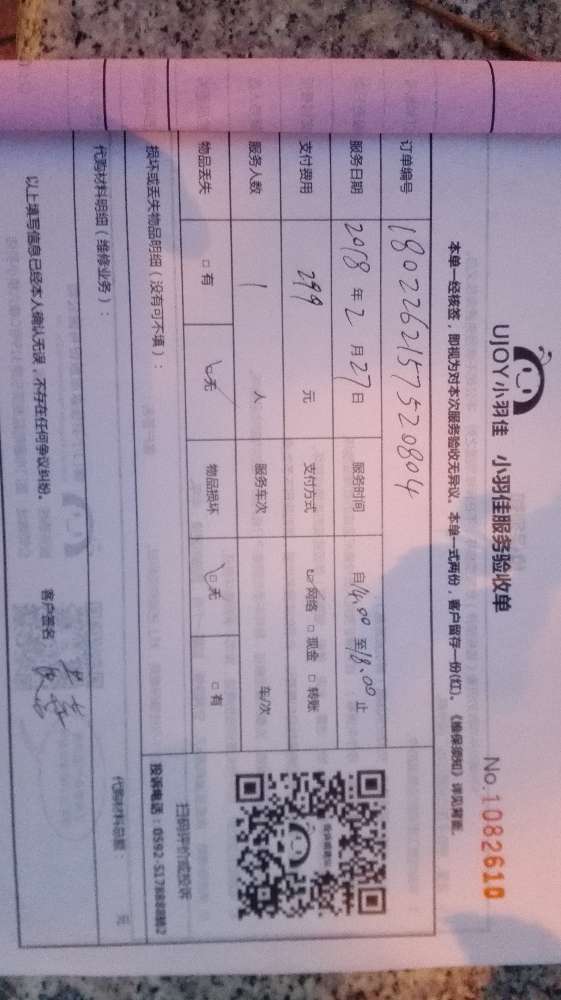 UJOY小羽佳 小羽佳服务验收单
No.1082610
本单一经核签，即视为对本次服务验收无异议。本单一式两份，客户留存一份(红)。《维保须知》详见背面。
订单编号 1802262157520804
服务日期 2018 年 2 月 27 日 服务时间 自 14:00 至 18:00 止
支付费用 299 元 支付方式 ☑网络 □现金 □转账
服务人数 1 人 服务车次 车/次
物品丢失 □有 ☑无 物品损坏 ☑无 □有
扫码评价或投诉
损坏或丢失物品明细（没有可不填）：
投诉电话：0592-5178888转2
代购材料明细（维修业务）：
代购材料总额： 元
以上填写信息已经本人确认无误，不存在任何争议纠纷。
客户签名